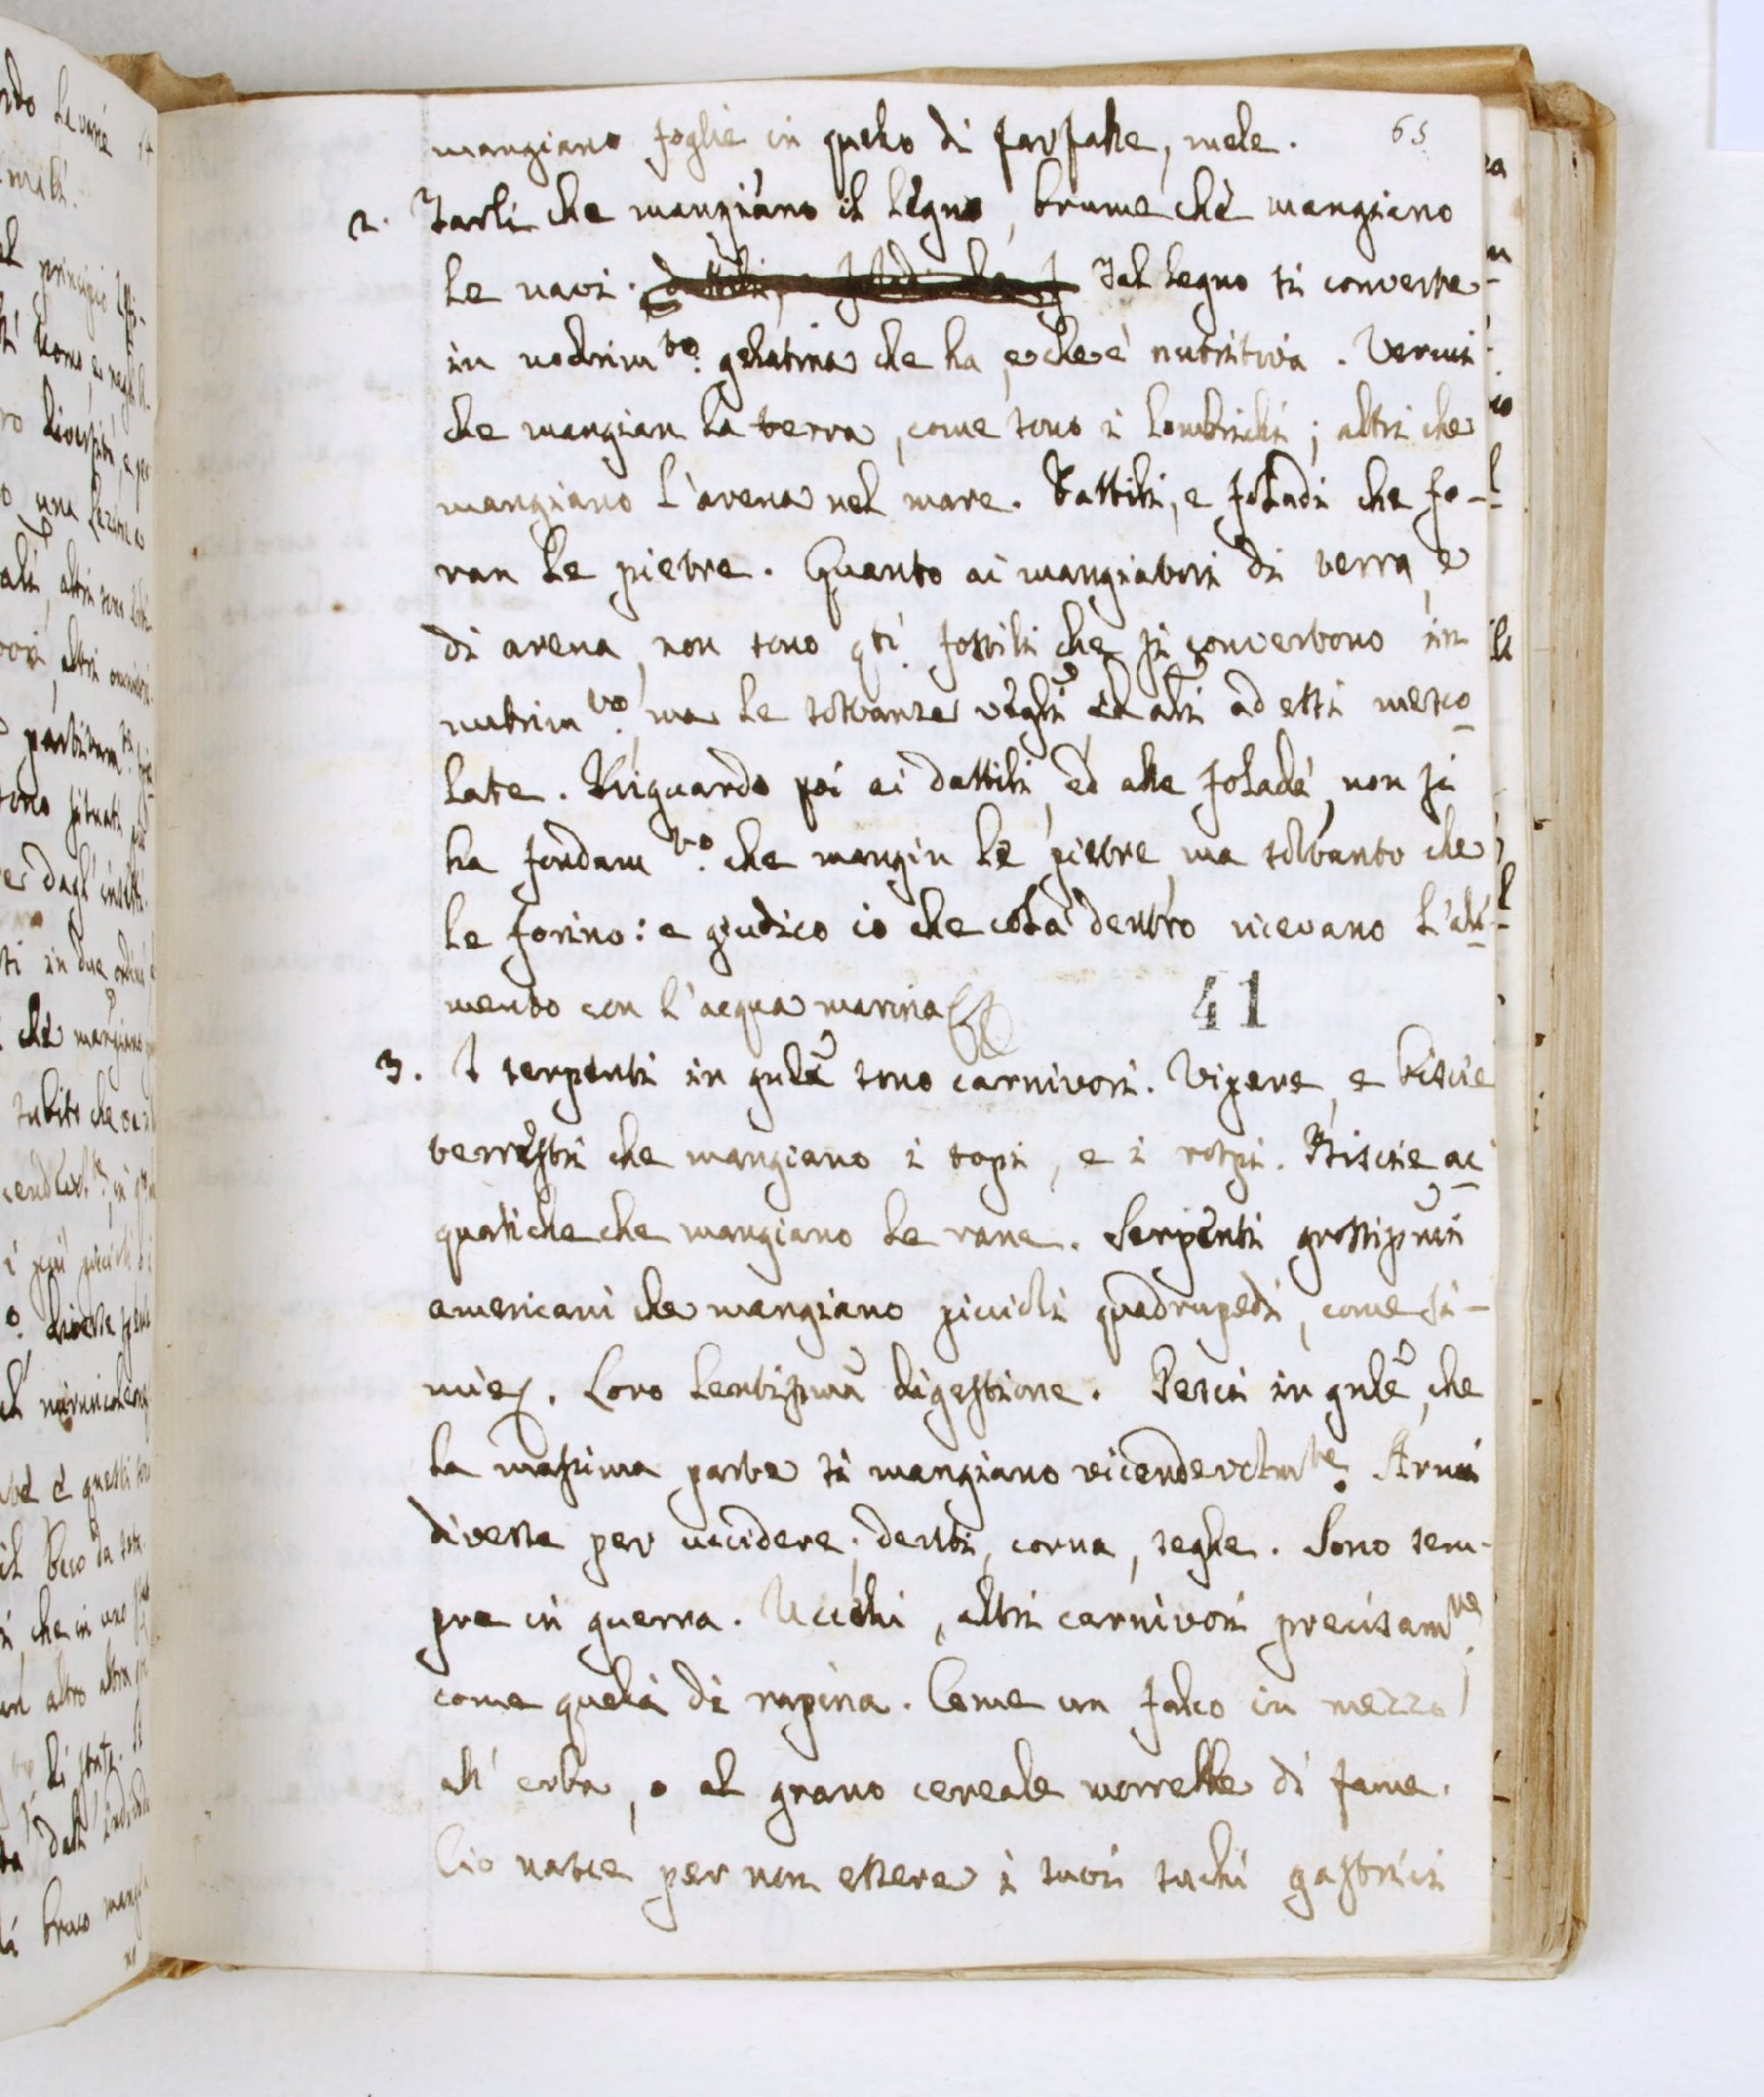 65
mangiano foglie in quello di farfalle, mele.
2. Tarli che mangiano il legno, brume che mangiano
le navi. dattili, e foladi che f Tal legno si converte
in nodrimto. gelatina che ha, e che è nutritiva. Vermi
che mangian la terra, come sono i lombrichi; altri che
mangiano l'arena nel mare. Dattili, e foladi che fo-
ran le pietre. Quanto ai mangiatori di terra, e
di arena, non sono qti fossili che si convertono in
nutrimto. ma le sostanze vegli ed ali ad essi mesco
late. Riguardo poi ai dattili, ed alle foladi, non si
ha fondamto. che mangin le pietre, ma soltanto che
le forino: e giudico io che colà dentro ricevano l'ali-
mento con l'acqua marina
41
3. I serpenti in gnle sono carnivori. Vipere, e biscie
terrestri che mangiano i topi, e i rospi. Biscie ac
quatiche che mangiano le rane. Serpenti grossissimi
americani che mangiano piccioli quadrupedi, come si-
mie. Loro lentissima digestione. Pesci in gnle, che
la massima parte si mangiano vicendevolmte. Armi
diverse per uccidere; denti, corna, seghe. Sono sem-
pre in guerra. Uccelli, altri carnivori precisamte
come quelli di rapina. Come un falco in mezzo
all'erba, o al grano cereale morrebbe di fame.
Ciò nasce per non essere i suoi suchi gastrici